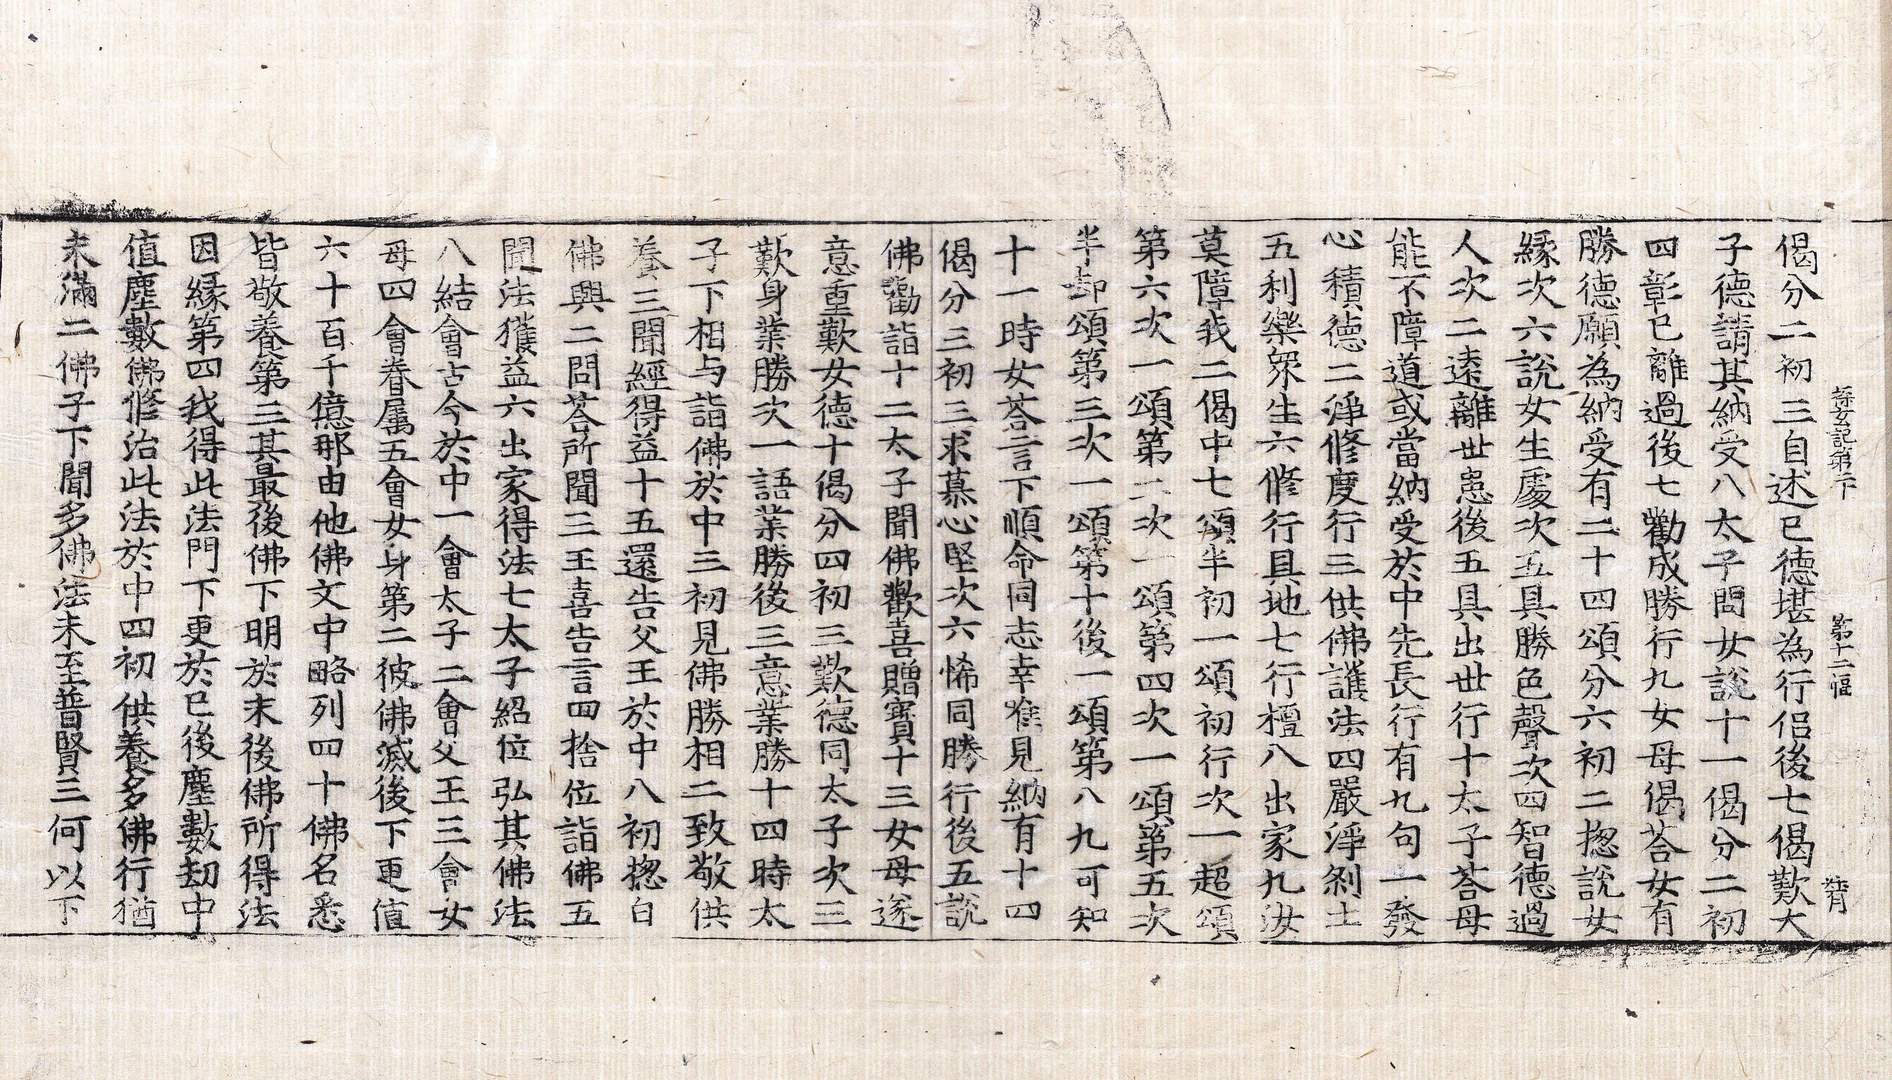 孫玄記第下　第十二幅
偈分二初三自述已德堪為行侶後七偈歎太
子德請其納受八太子問女說十一偈分二初
四彰已離過後七勸成勝行九女母偈荅女有
勝德願為納受有二十四頌分六初二揔說女
緣次六說女生處次五具勝色聲次四智德過
人次二遠離世患後五具出世行十太子荅母
能不障道或當納受於中先長行有九句一發
心積德二淨修度行三供佛護法四嚴淨剎土
五利樂眾生六修行具地七行檀八出家九汝
莫障我二偈中七頌半初一頌初行次一超頌
第六次一頌第二次一頌第四次一頌第五次
半却頌第三次一頌第十後一頌第八九可知
十一時女荅言下順命同志幸准見納有十四
偈分三初三求慕心堅次六悕同勝行後五說
佛勸詣十二太子聞佛歡喜贈寶十三女母遂
意重歎女德十偈分四初三歎德同太子次三
歎身業勝次一語業勝後三意業勝十四時太
子下相与詣佛於中三初見佛勝相二致敬供
養三聞經得益十五還告父王於中八初揔白
佛興二問荅所聞三王喜告言四捨位詣佛五
聞法獲益六出家得法七太子紹位弘其佛法
八結會古今於中一會太子二會父王三會女
母四會眷属五會女身第二彼佛滅後下更值
六十百千億那由他佛文中略列四十佛名悉
皆敬養第三其最後佛下明於末後佛所得法
因緣第四我得此法門下更於已後塵數劫中
值塵數佛修治此法於中四初供養多佛行猶
未滿二佛子下聞多佛法未至普賢三何以下